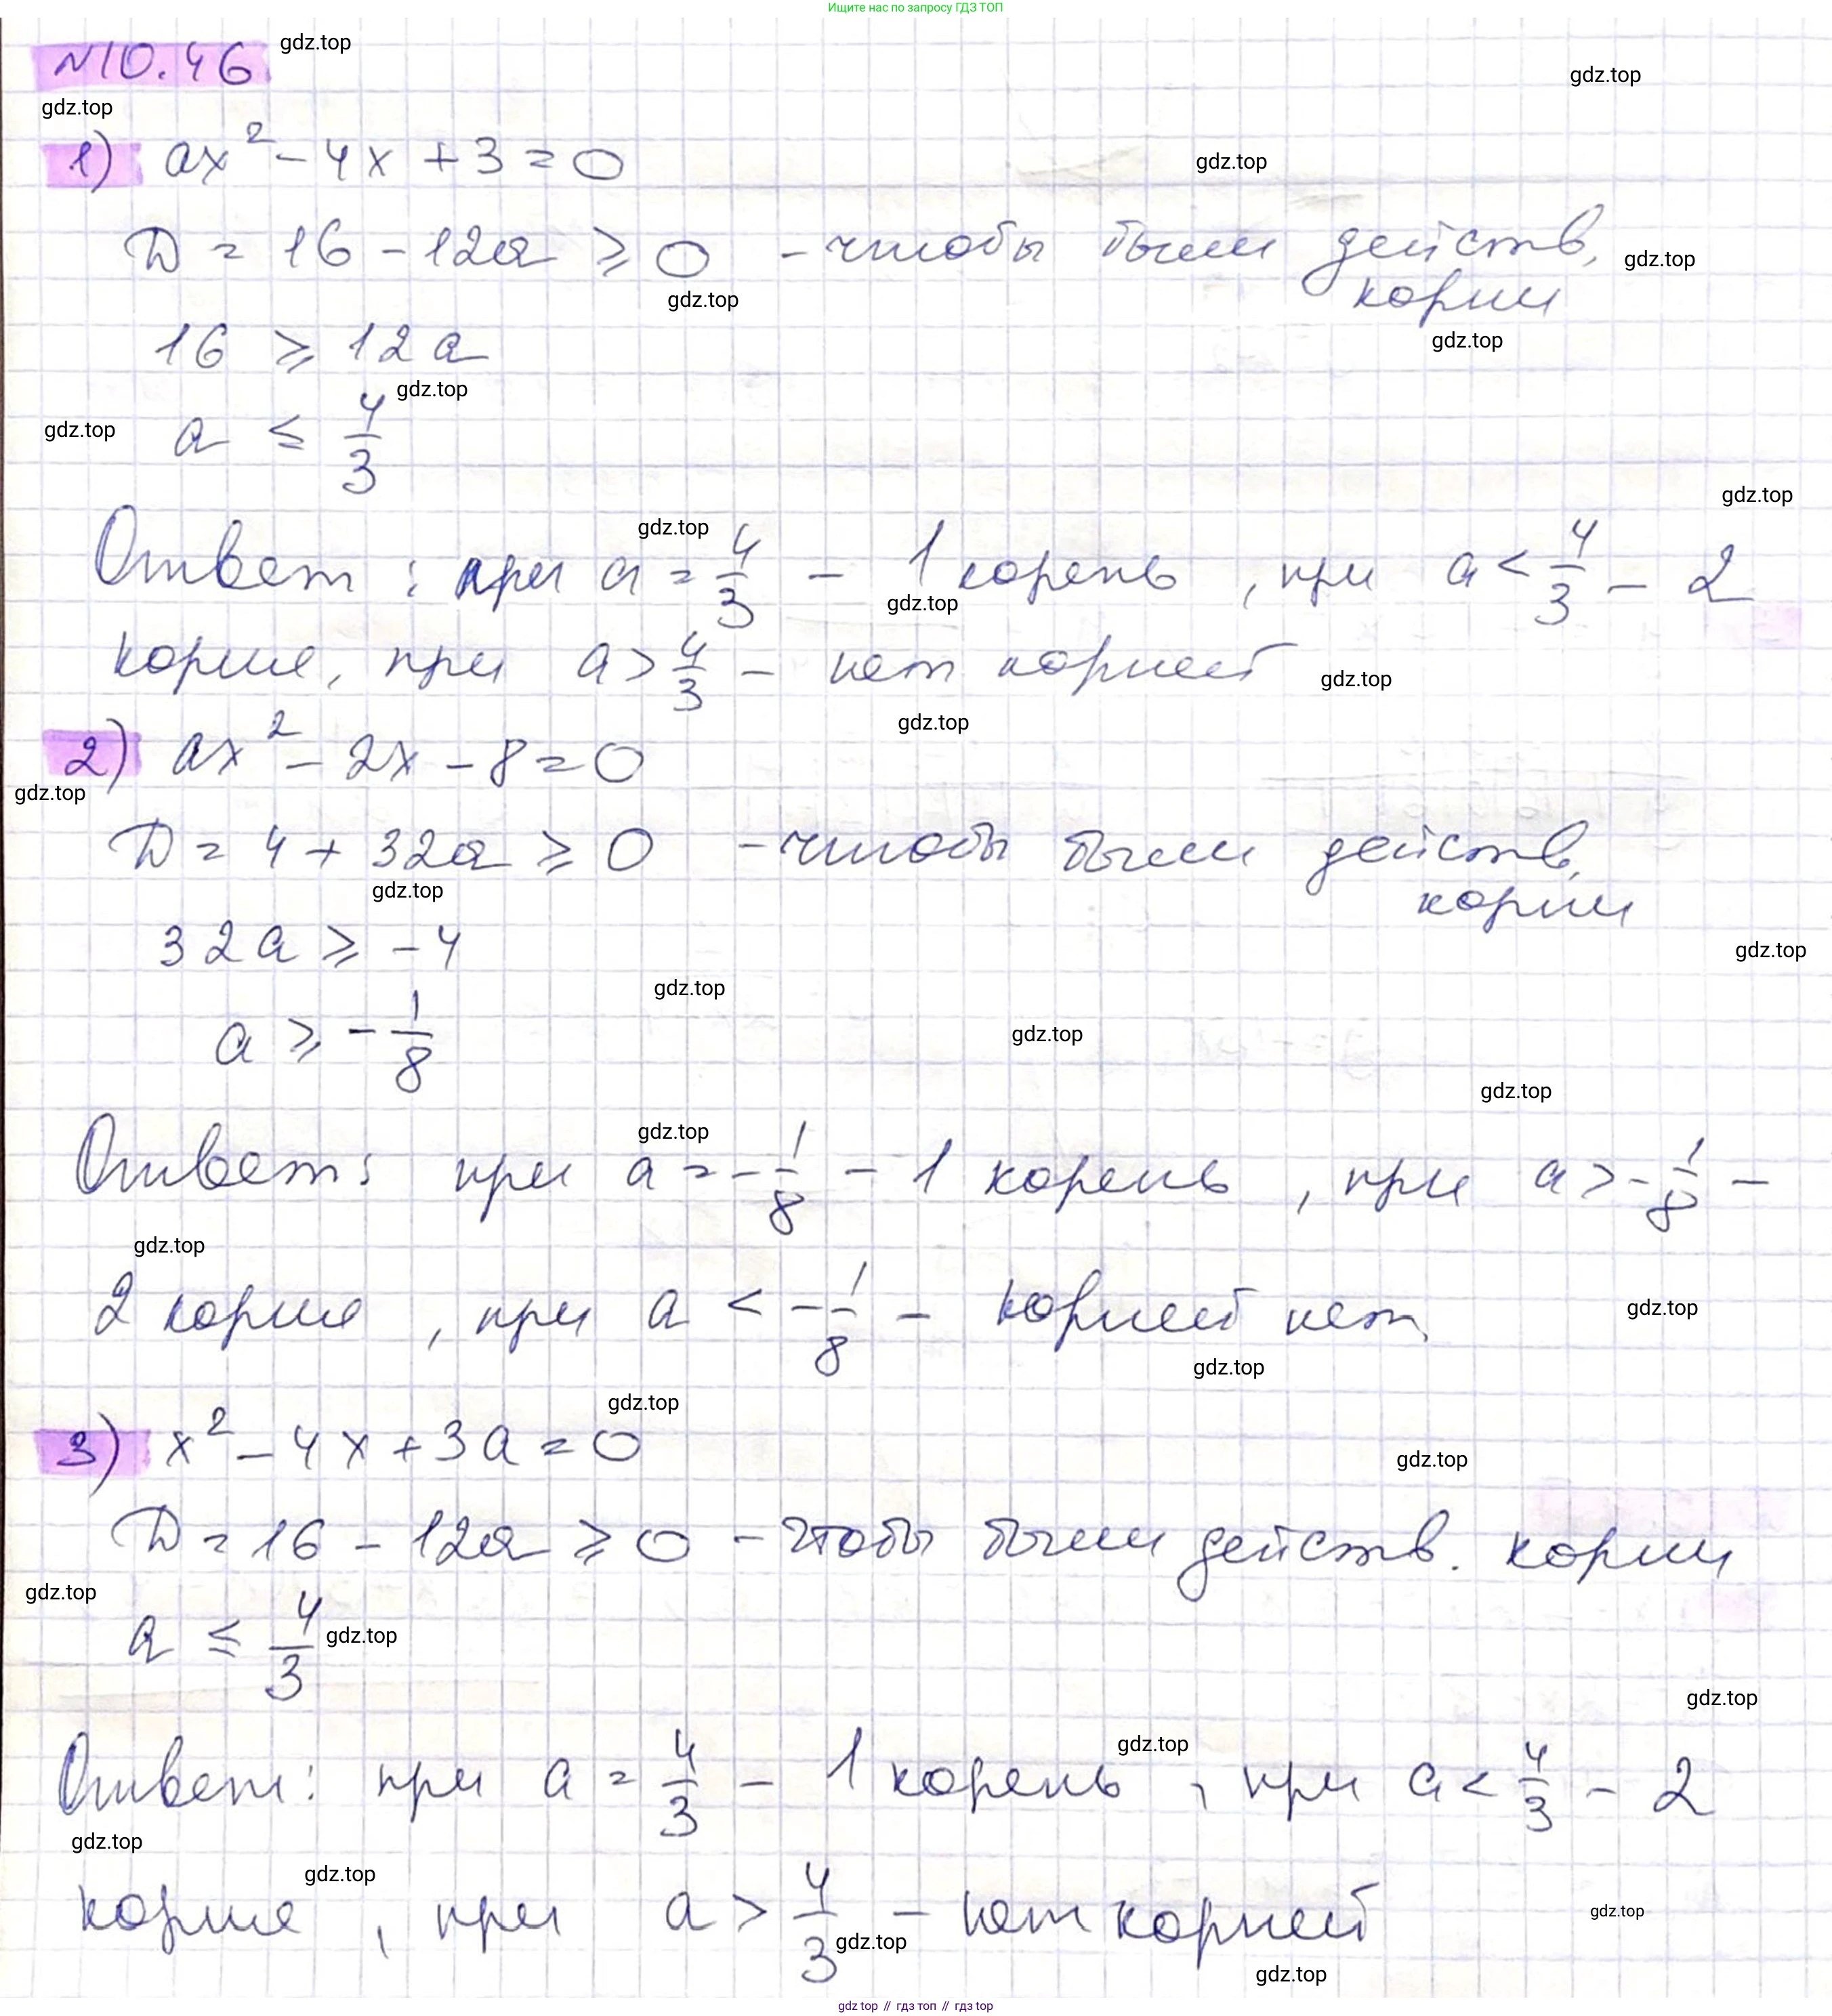 Ищите нас по запросу ГДЗ ТОП
N10.46 gdz.top
gdz.top
gdz.top
1) ax² - 4x + 3 = 0 gdz.top
D = 16 - 12a ⩾ 0 - чтобы были действ. gdz.top
gdz.top корни
16 ⩾ 12a gdz.top
gdz.top
gdz.top a ≤ 4/3
gdz.top
gdz.top
Ответ: при a = 4/3 - 1 корень, при a < 4/3 - 2
gdz.top
корня, при a > 4/3 - нет корней gdz.top
gdz.top
2) ax² - 2x - 8 = 0
gdz.top
D = 4 + 32a ⩾ 0 - чтобы были действ.
gdz.top корни
32a ⩾ -4 gdz.top
gdz.top
a ⩾ -1/8 gdz.top
gdz.top
gdz.top
Ответ: при a = -1/8 - 1 корень, при a > -1/8 -
gdz.top
2 корня, при a < -1/8 - корней нет. gdz.top
gdz.top
gdz.top
3) x² - 4x + 3a = 0 gdz.top
D = 16 - 12a ⩾ 0 - чтобы были действ. корни
gdz.top
a ≤ 4/3 gdz.top
gdz.top
gdz.top
Ответ: при a = 4/3 - 1 корень, при a < 4/3 - 2
gdz.top
gdz.top
корня, при a > 4/3 - нет корней gdz.top
gdz.top
gdz.top
gdz top // гдз топ // gdz top